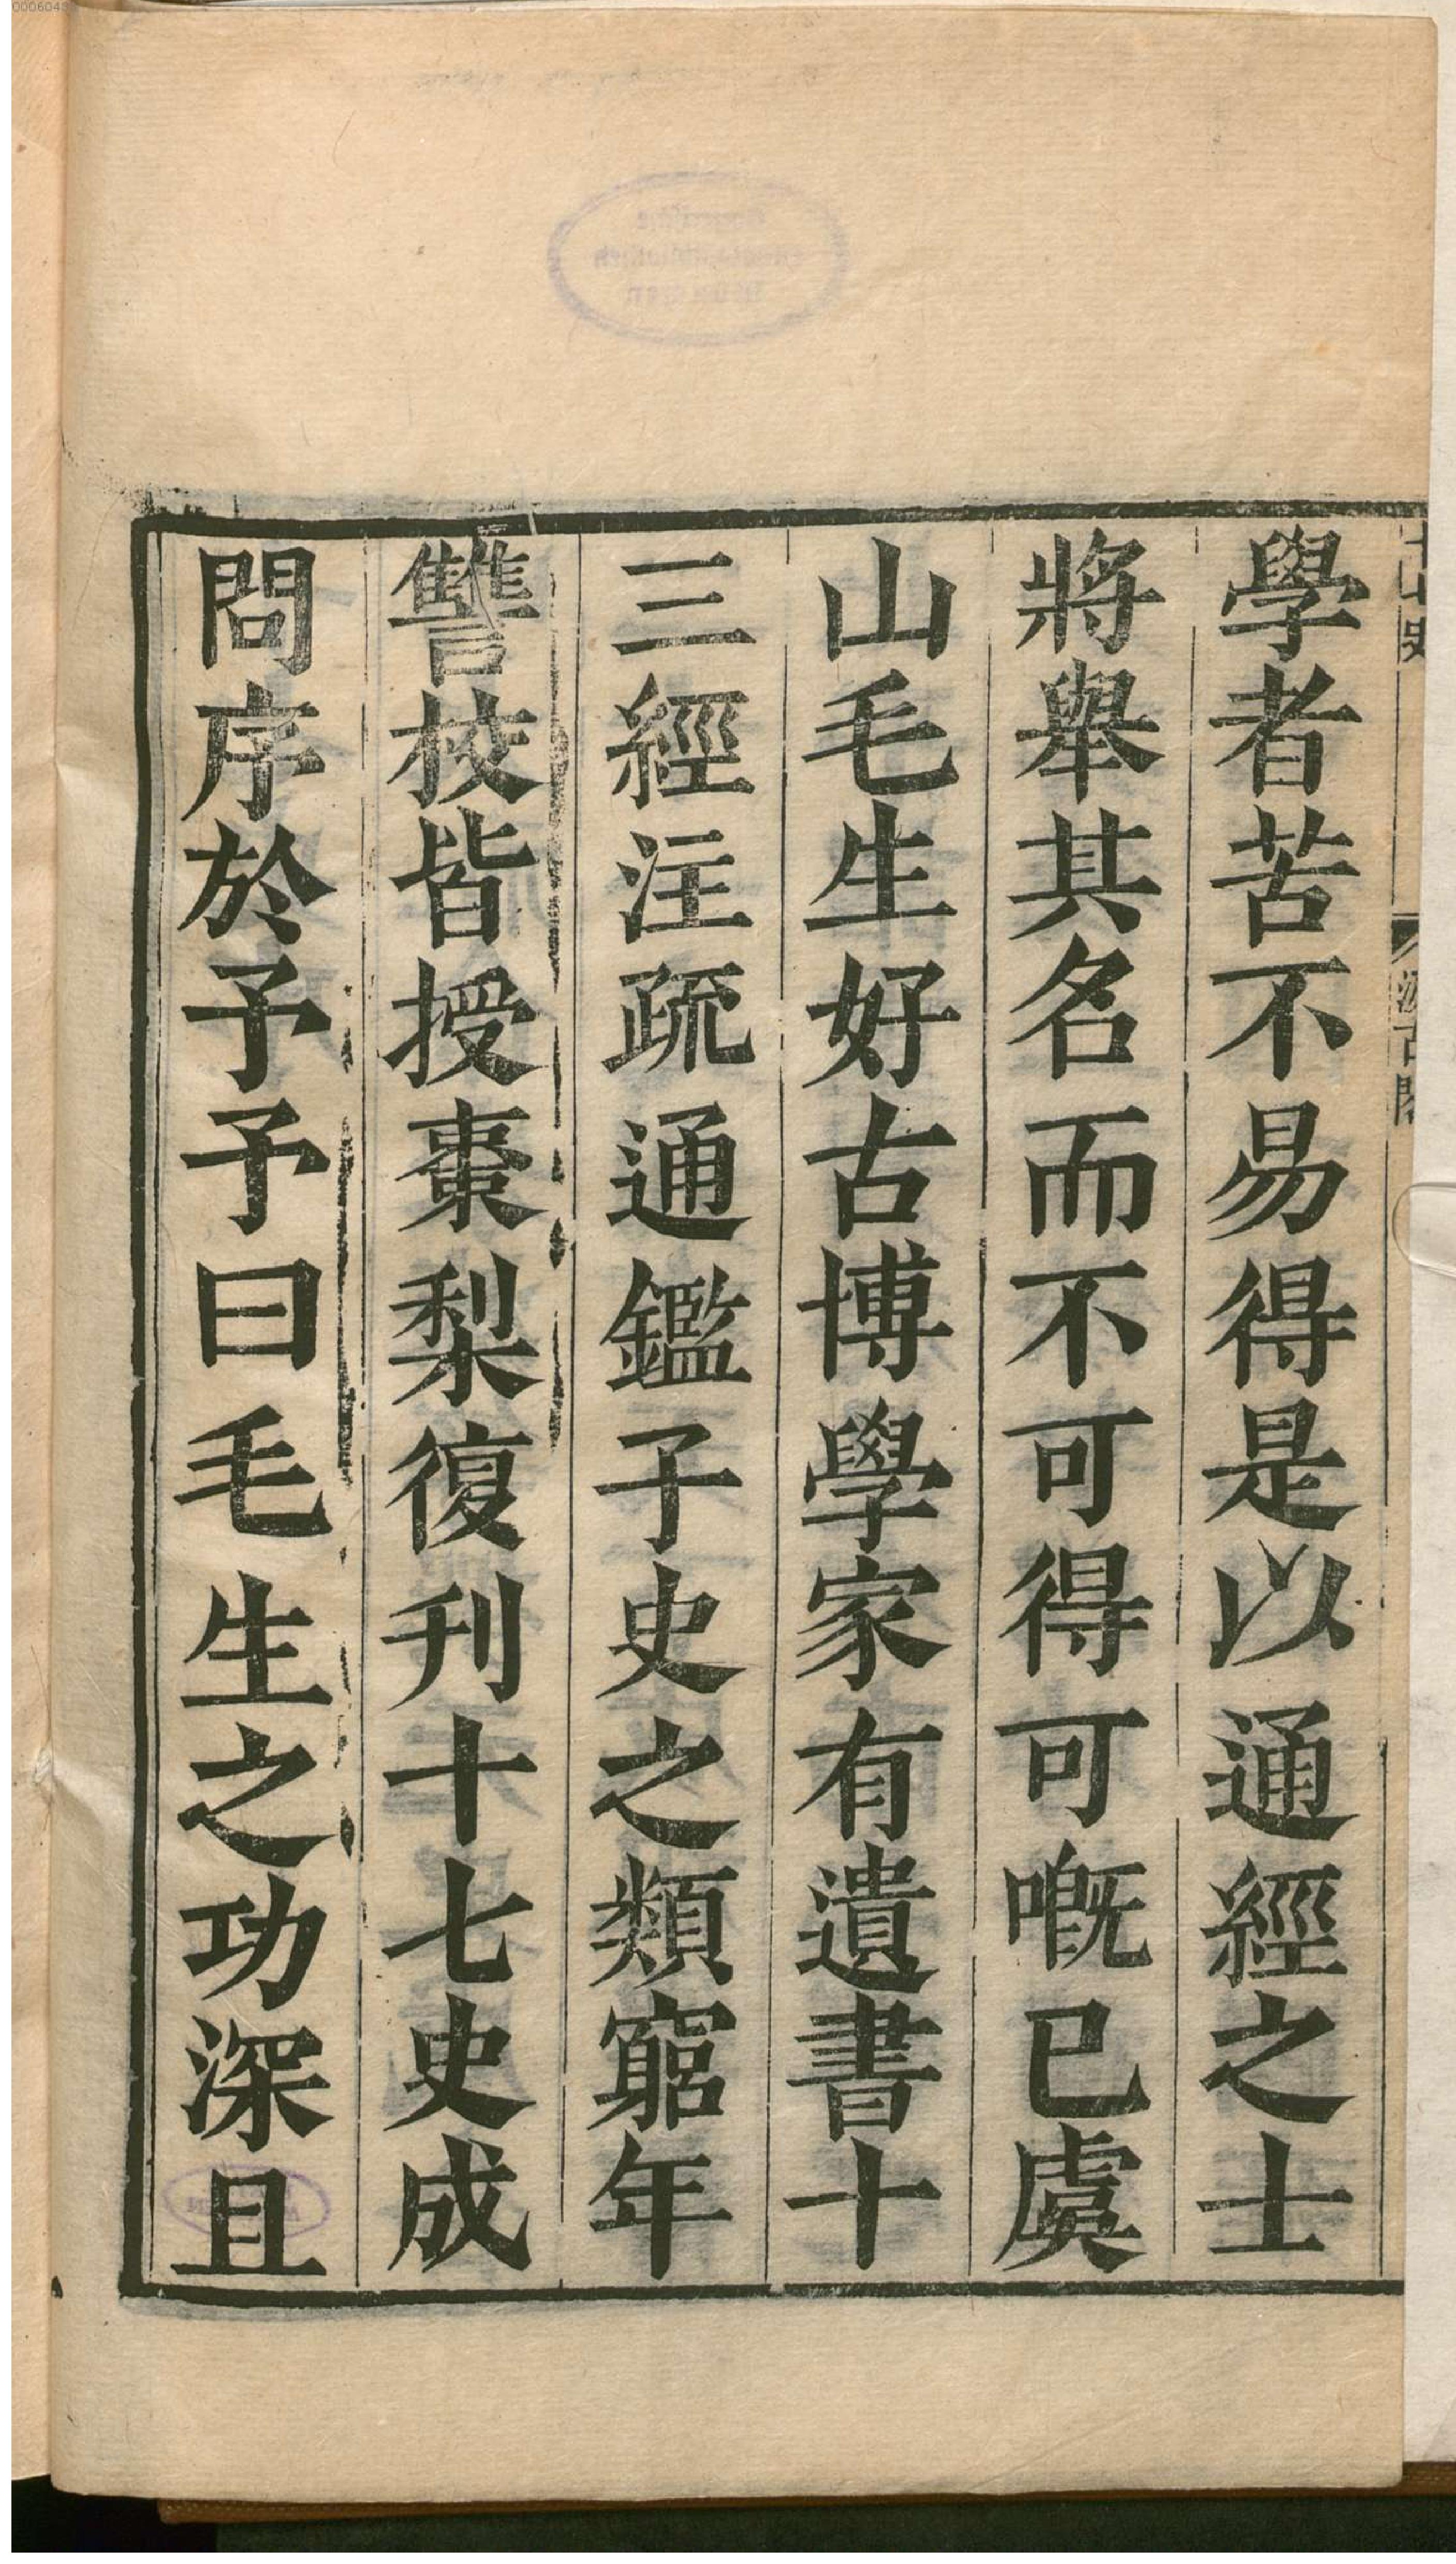 學者苦不易得是以通經之士
將舉其名而不可得可嘅已虞
山毛生好古博學家有遺書十
三經注疏通鑑子史之類窮年
讐校皆授棗梨復刊十七史成
問序於予予曰毛生之功深且